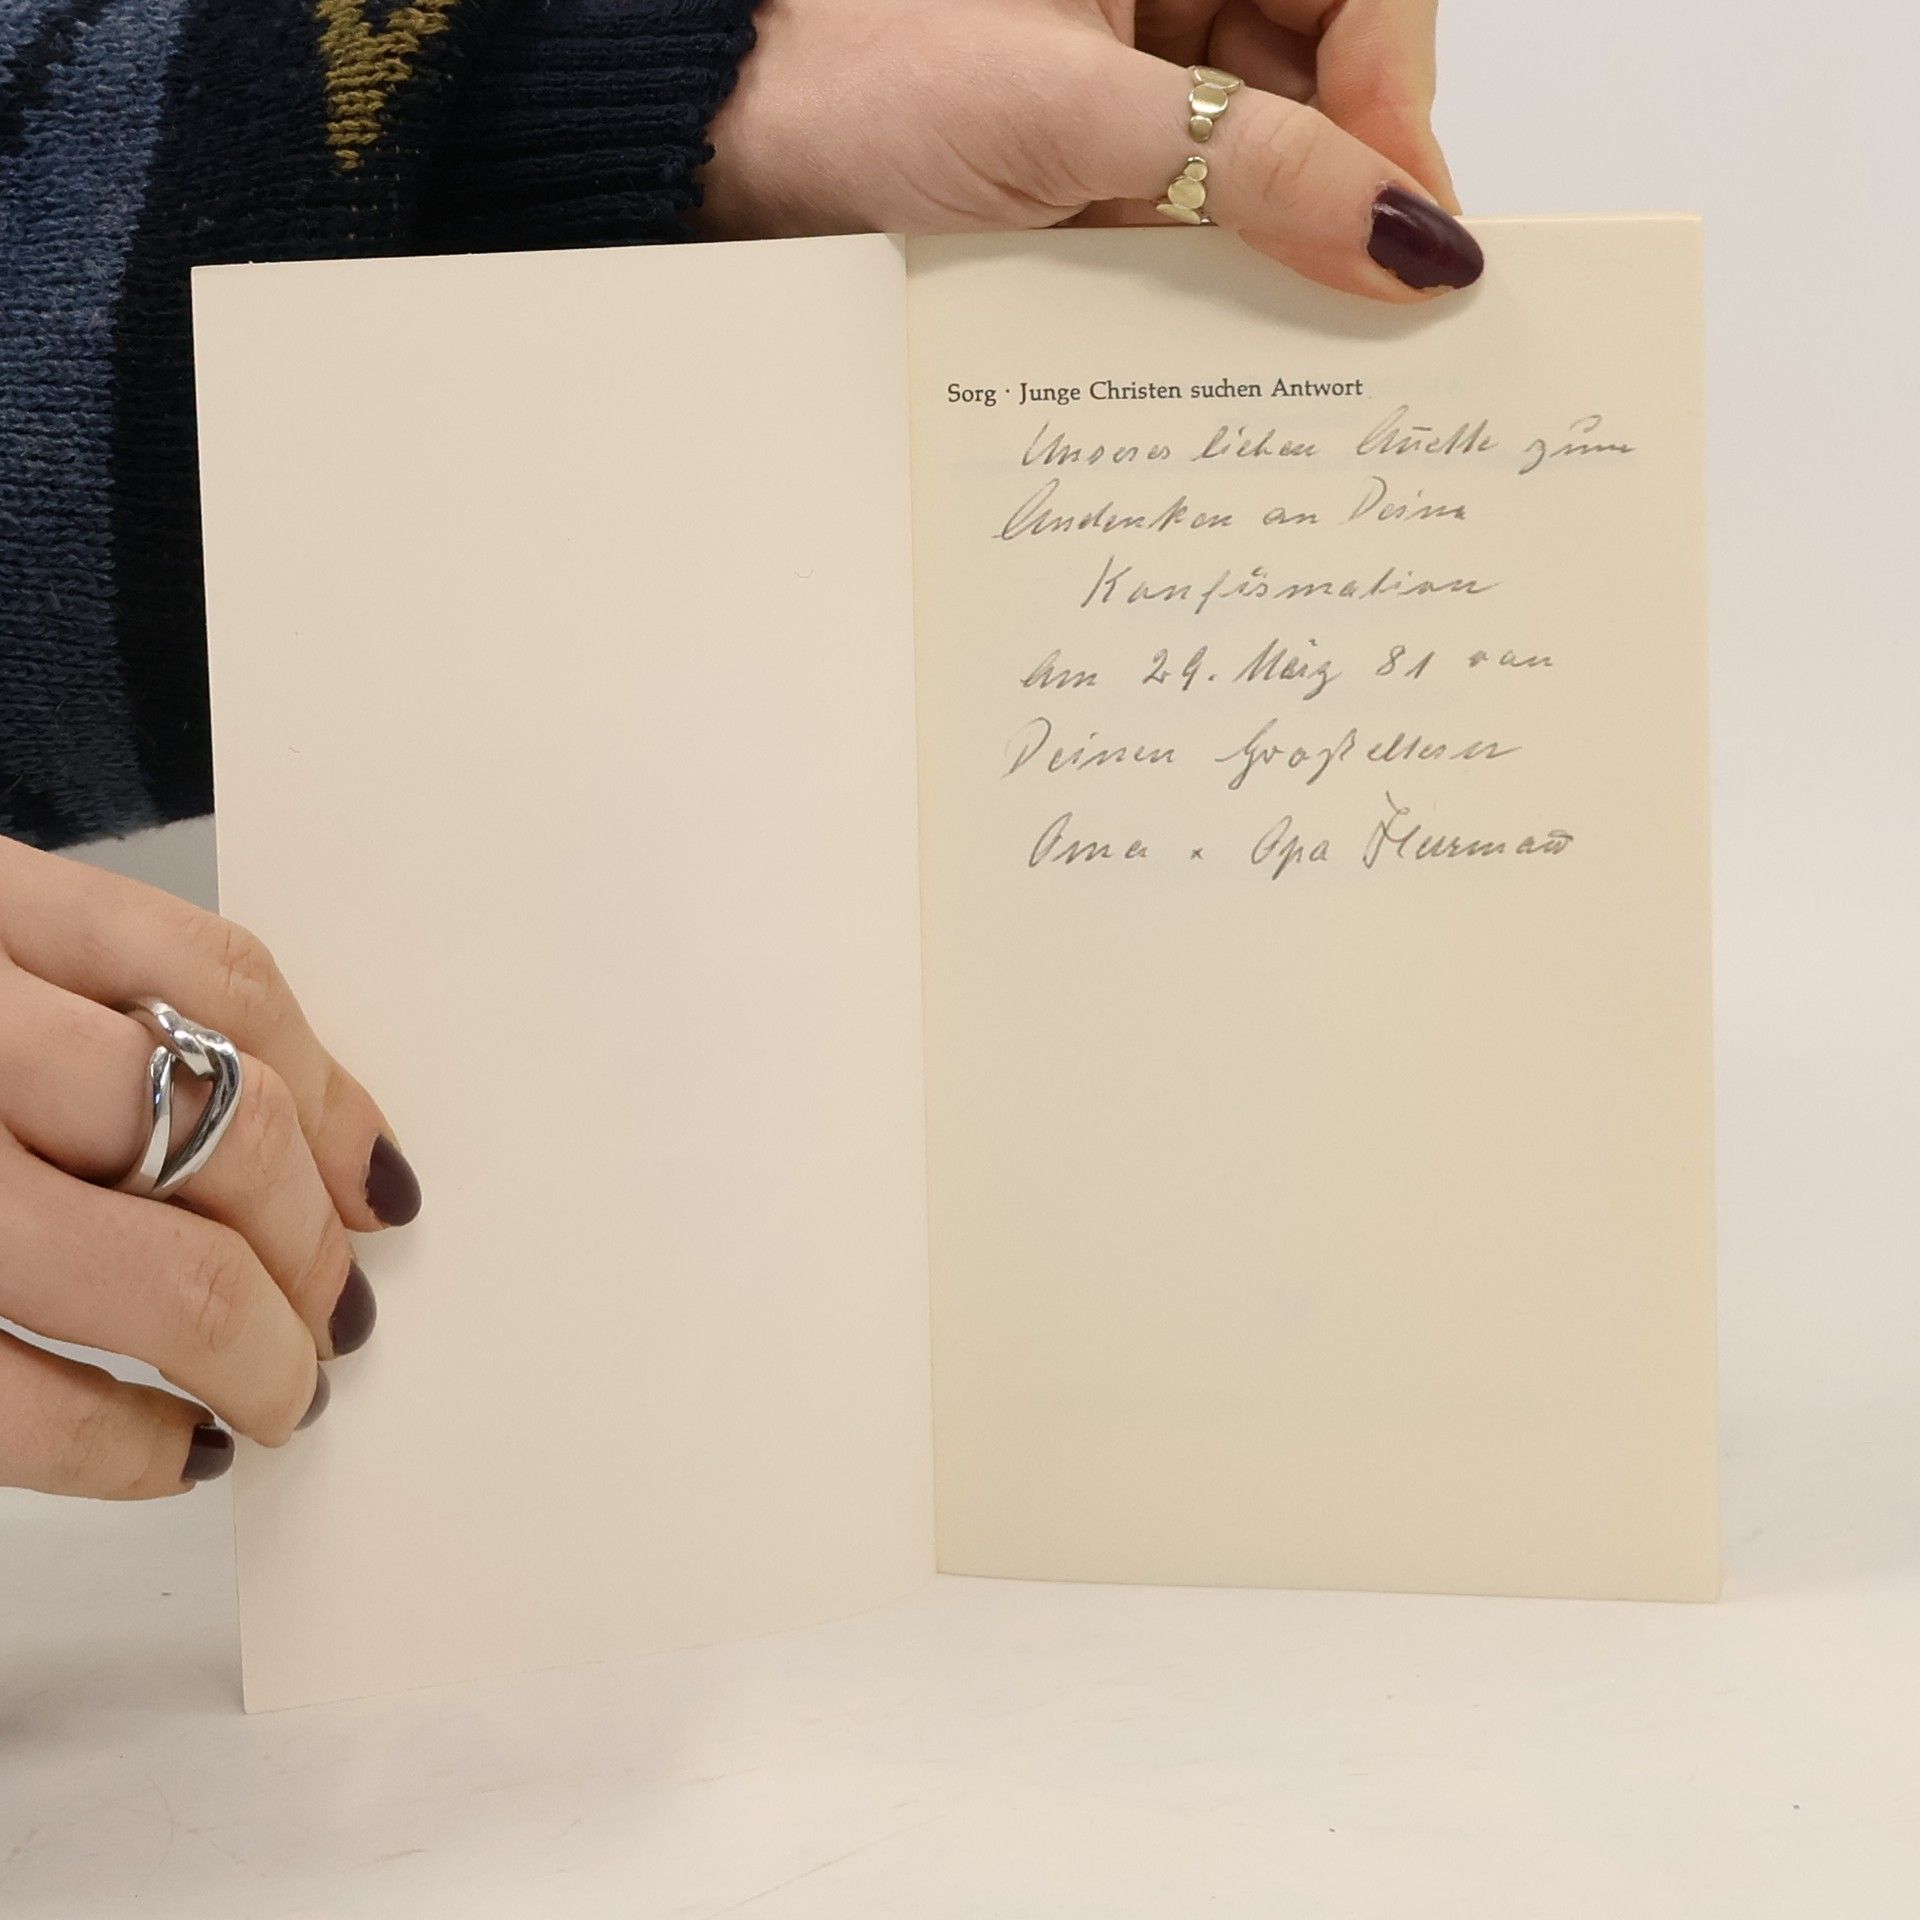 Sorg · Junge Christen suchen Antwort
Unserer lieben Anette zum
Andenken an Deine
Konfirmation
am 29. März 81 von
Deinen Großeltern
Oma + Opa